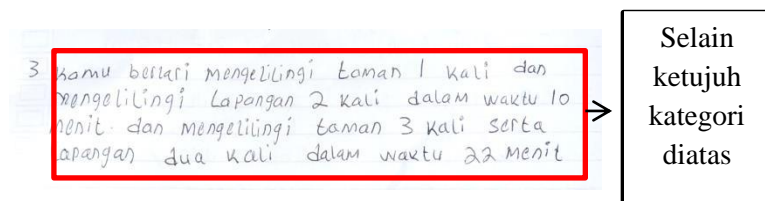 3 kamu berlari mengelilingi taman 1 kali dan
mengelilingi Lapangan 2 kali dalam waktu 10
menit. dan mengelilingi taman 3 kali serta
Lapangan dua kali dalam waktu 22 menit
Selain
ketujuh
kategori
diatas